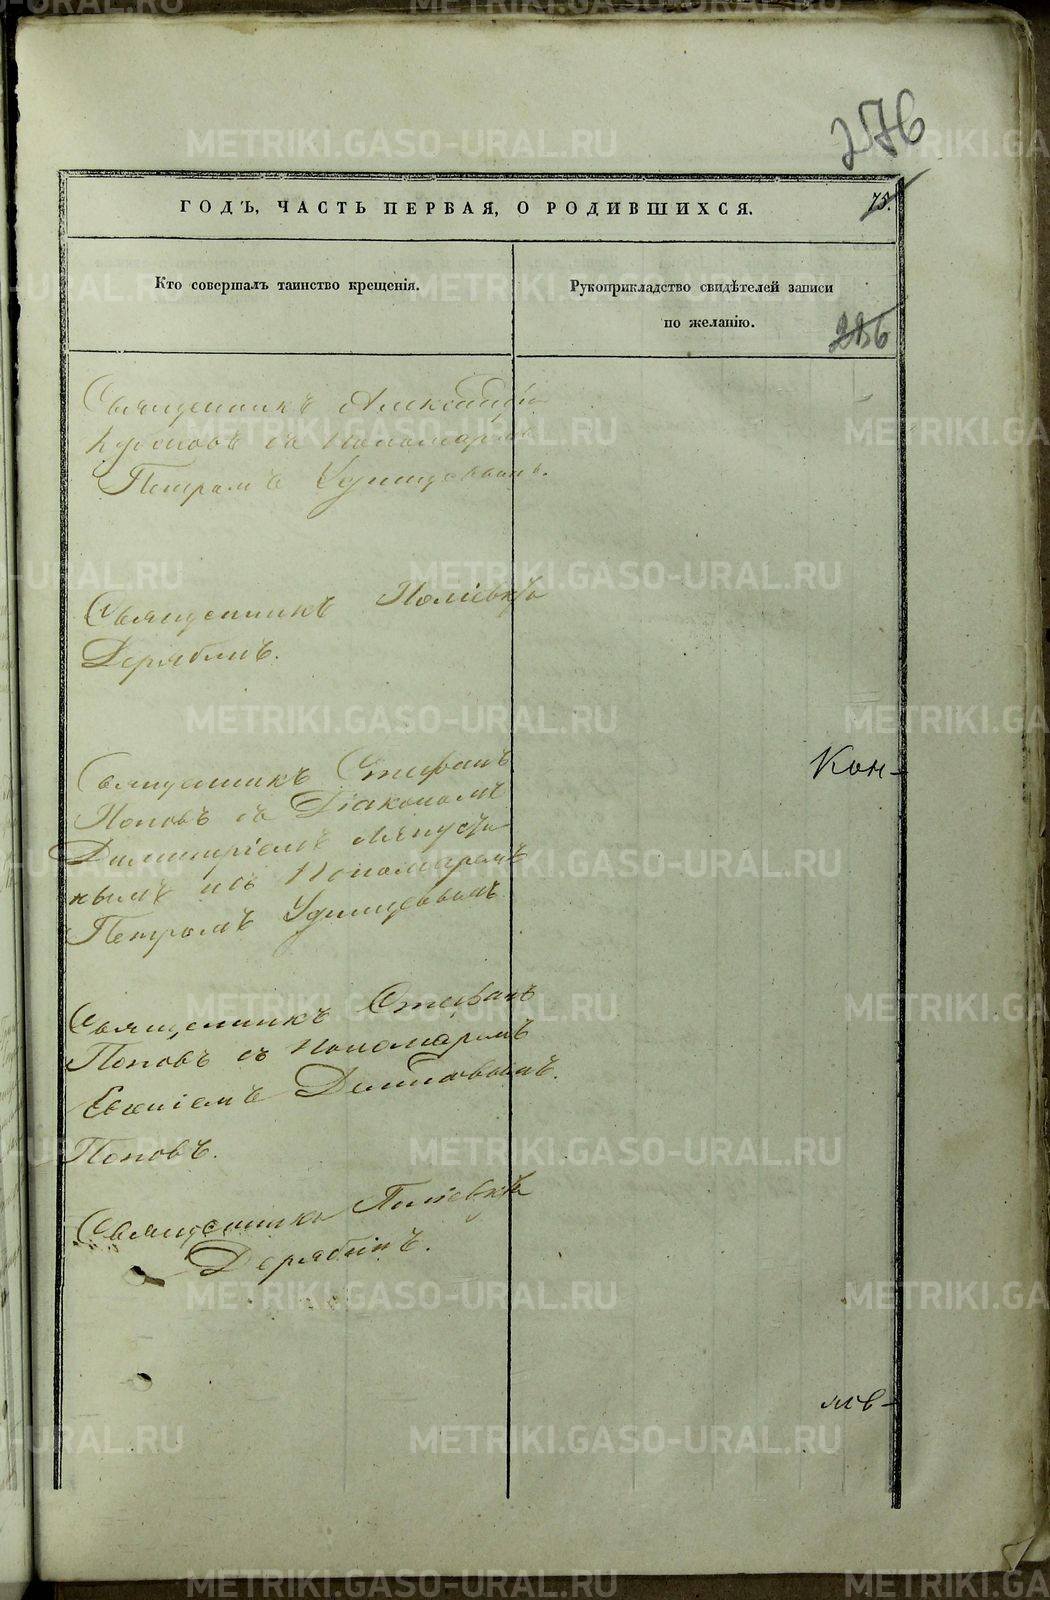 276
75.
ГОДЪ, ЧАСТЬ ПЕРВАЯ, О РОДИВШИХСЯ.
Кто совершалъ таинство крещенія.
Рукоприкладство свидѣтелей записи
по желанію.
286
Священникъ Александръ
съ Пономаремъ
Петромъ Удинцовымъ.
Священникъ Поліевктъ
Дерябинъ.
Священникъ Стефанъ
Поповъ съ Діакономъ
Димитріемъ Ляпусти
нымъ и съ Пономаремъ
Петромъ Удинцовымъ
Кон-
Священникъ Стефанъ
Поповъ съ Пономаремъ
Евгеніемъ
Поповъ.
Священникъ Поліевктъ
Дерябинъ.
METRIKI.GASO-URAL.RU